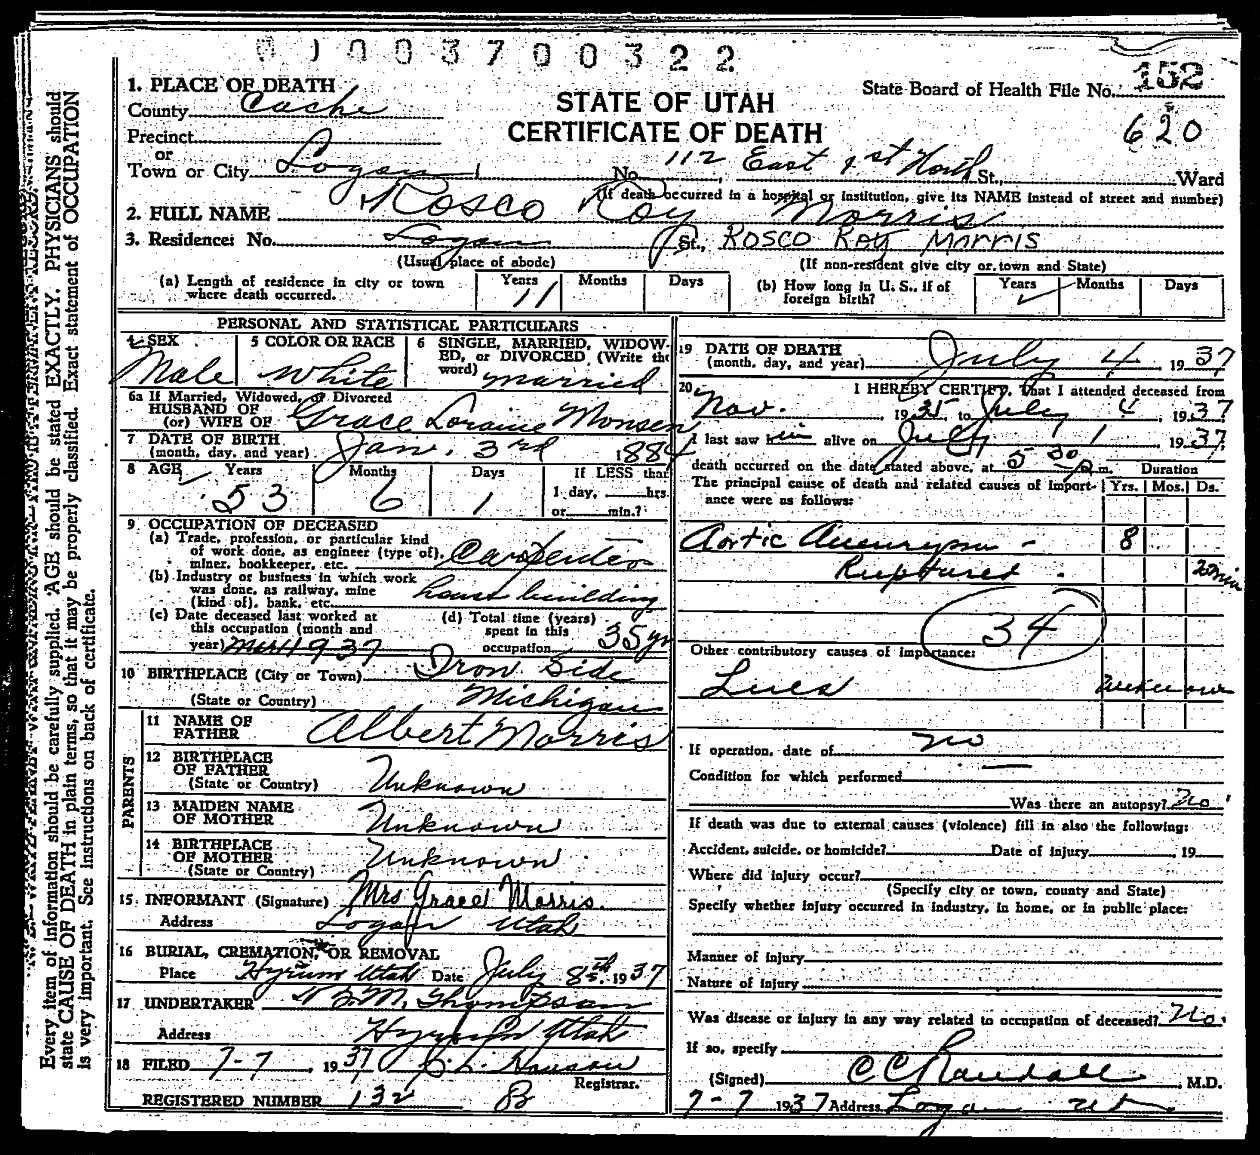 003700322
1. PLACE OF DEATH
County Cache
Precinct
or
Town or City Logan
STATE OF UTAH
CERTIFICATE OF DEATH
State Board of Health File No. 152
620
No. 112 East 1st North St., Ward
(If death occurred in a hospital or institution, give its NAME instead of street and number)
2. FULL NAME Rosco Roy Morris
3. Residence: No. Logan St., ROSCO ROY MORRIS
(Usual place of abode) (If non-resident give city or town and State)
(a) Length of residence in city or town where death occurred. Years 11 Months Days
(b) How long in U. S., if of foreign birth? Years Months Days
PERSONAL AND STATISTICAL PARTICULARS
4 SEX Male
5 COLOR OR RACE White
6 SINGLE, MARRIED, WIDOW-
ED, or DIVORCED (Write the
word) married
6a If Married, Widowed, or Divorced
HUSBAND OF
(or) WIFE OF Grace Loraine Monsen
7 DATE OF BIRTH
(month, day, and year) Jan. 3rd 1884
8 AGE Years 53 Months 6 Days 1
If LESS than
1 day, hrs.
or min.?
9 OCCUPATION OF DECEASED
(a) Trade, profession, or particular kind
of work done, as engineer (type of),
miner, bookkeeper, etc. Carpenter
(b) Industry or business in which work
was done, as railway, mine
(kind of), bank, etc. house building
(c) Date deceased last worked at
this occupation (month and
year) Mar 1937
(d) Total time (years)
spent in this
occupation 35 yr
10 BIRTHPLACE (City or Town) Iron Side
(State or Country) Michigan
PARENTS
11 NAME OF
FATHER Albert Morris
12 BIRTHPLACE
OF FATHER
(State or Country) Unknown
13 MAIDEN NAME
OF MOTHER Unknown
14 BIRTHPLACE
OF MOTHER
(State or Country) Unknown
15 INFORMANT (Signature) Mrs Grace Morris.
Address Logan Utah
16 BURIAL, CREMATION, OR REMOVAL
Place Hyrum Utah Date July 8th 1937
17 UNDERTAKER M. Thompson
Address Hyrum Utah
18 FILED 7-7, 1937 Hanson
Registrar.
REGISTERED NUMBER 132 B
19 DATE OF DEATH
(month, day, and year) July 4, 1937
20 I HEREBY CERTIFY, That I attended deceased from
Nov., 1935 to July 4, 1937
I last saw him alive on July 1, 1937
death occurred on the date stated above, at 5 30 p.m.
The principal cause of death and related causes of import-
ance were as follows:
Duration
Yrs. Mos. Ds.
Aortic Aneurysm - 8
Ruptured 20 min
34
Other contributory causes of importance:
Lues unknown
If operation, date of no
Condition for which performed —
Was there an autopsy? No
If death was due to external causes (violence) fill in also the following:
Accident, suicide, or homicide? Date of injury 19
Where did injury occur?
(Specify city or town, county and State)
Specify whether injury occurred in industry, in home, or in public place:
Manner of injury
Nature of injury
Was disease or injury in any way related to occupation of deceased? No.
If so, specify
(Signed) C C Randall M.D.
7-7 1937 Address Logan Ut.
Every item of information should be carefully supplied. AGE should be stated EXACTLY. PHYSICIANS should
state CAUSE OF DEATH in plain terms, so that it may be properly classified. Exact statement of OCCUPATION
is very important. See instructions on back of certificate.